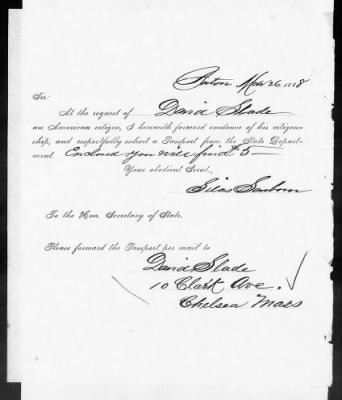 Boston Nov 26 1878
Sir:
At the request of David Slade
an American citizen, I herewith forward evidence of his citizen-
ship, and respectfully solicit a Passport from the State Depart-
ment Enclosed you will find $5—
Your obedient Servt.,
Silas Sanborn
To the Hon. Secretary of State,
Please forward the Passport per mail to
David Slade
10 Clark Ave.
Chelsea Mass